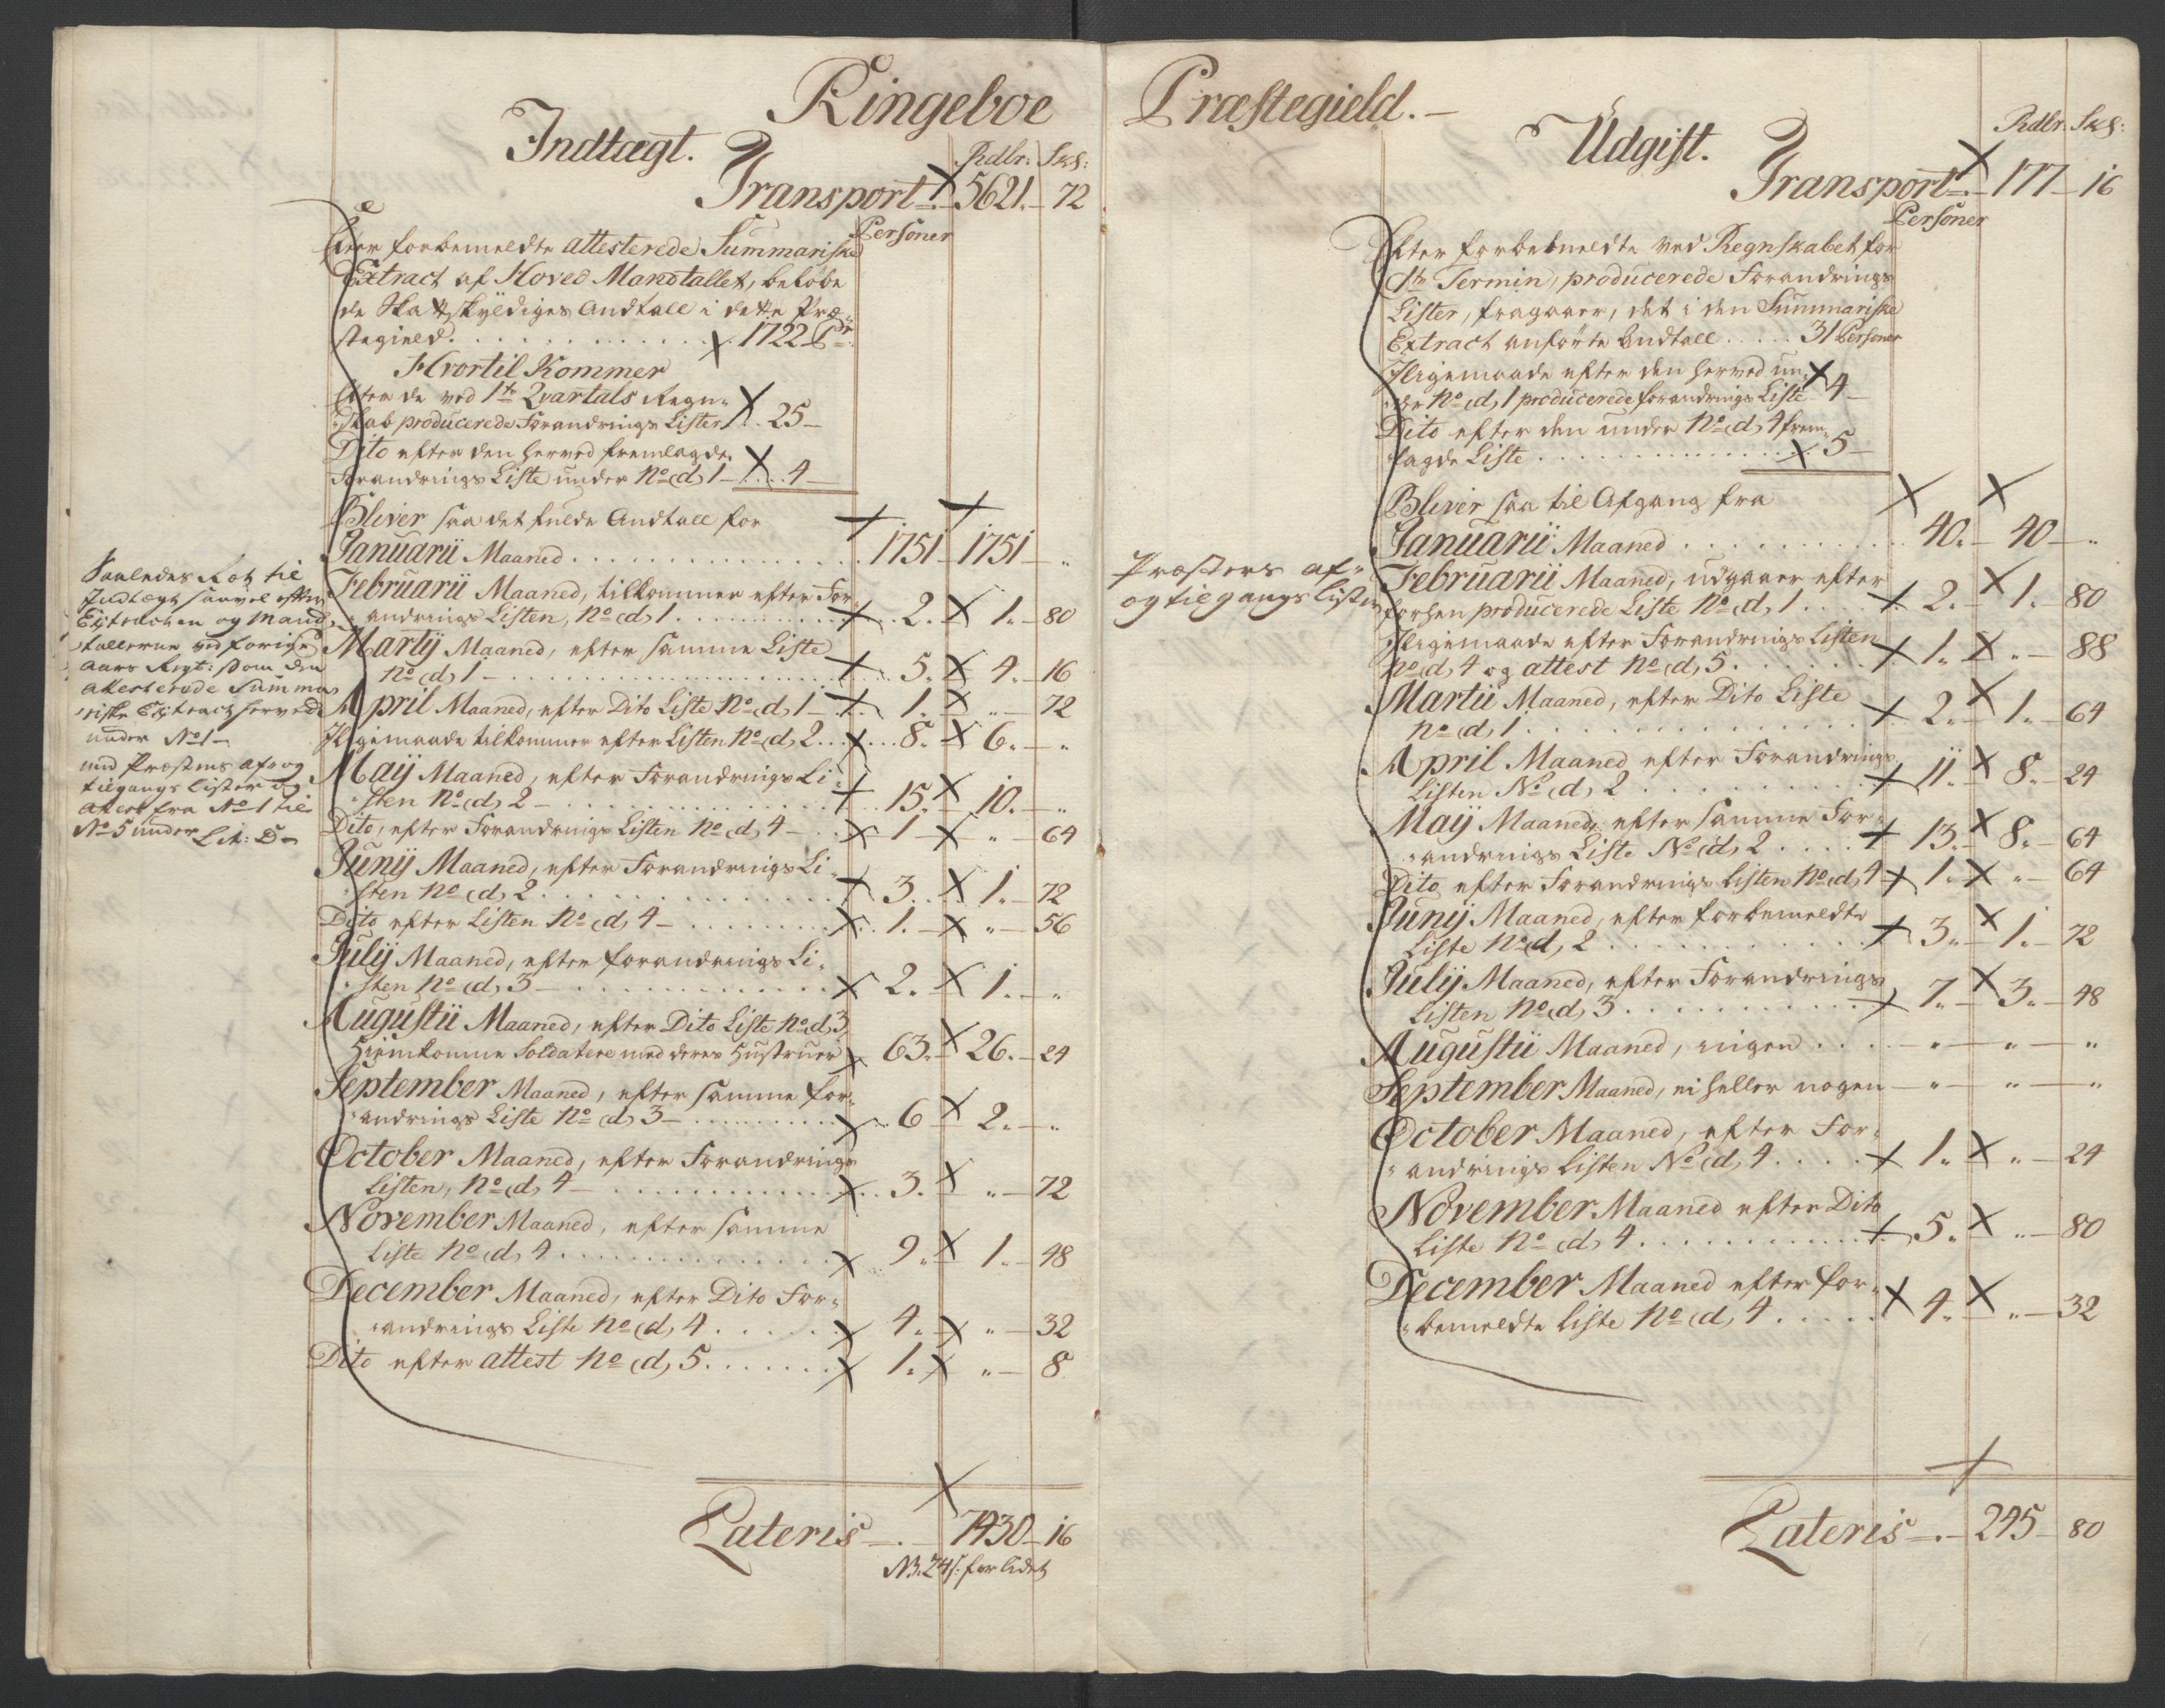 Ringeboe
Indtægt.
Rdlr: Skl:
Transport. 5621. 72
Personer
Efter forbemeldte attesterede Summariske
Extract af Hoved Mandtallet, beløbe
de Skattskyldiges Andtall i dette Præ-
stegield. 1722 Pr:
Hvortil Kommer
Efter de ved 1te Qvartals Regn-
skab producerede Forandrings Lister 25
Dito efter den herved fremlagde
Forandrings Liste under No (d, 1 4
Bliver saa det fulde Andtall for
Januarii Maaned 1751 1751 "
Februarii Maaned, tilkommer efter For-
andrings Listen, No (d, 1 2. 1. 80
Martij Maaned, efter samme Liste
No (d, 1 5. 4. 16
April Maaned, efter Dito Liste No (d, 1 1. " 72
Iligemaade tilkommer efter Listen No (d, 2 8. 6. "
Maij Maaned, efter Forandrings Li-
sten No (d, 2 15. 10. "
Dito, efter Forandrings Listen No (d, 4 1 " 64
Junij Maaned, efter Forandrings Li-
sten No (d, 2 3. 1. 72
Dito efter Listen No (d, 4 1. " 56
Julij Maaned, efter forandrings Li-
sten No (d, 3 2. 1. "
Augustii Maaned, efter Dito Liste No (d, 3
Hiemkomne Soldatere med deres Hustruer 63. 26. 24
September Maaned, efter samme for-
andrings Liste No (d, 3 6 2. "
October Maaned, efter Forandrings
Listen, No (d, 4 3. " 72
November Maaned, efter samme
Liste No (d, 4 9. 1. 48
December Maaned, efter Dito For-
andrings Liste No (d, 4 4. " 32
Dito efter attest No (d, 5 1. " 8
Lateris 7430 16
NB. 24 s: for lidet
Saaledes Rigt til
Indtægt saavel efter
Extracten og Mand-
tallerne ved forige
Aars Regt: som den
attesterede Summa-
riske Extract herved
under No 1
med Præstens af- og
tilgangs Lister og
attest fra No 1 til
No 5 under Lit: D
Præstegield.
Udgift.
Rdlr: Skl:
Transport. 177 16
Personer
Efter forbemeldte ved Regnskabet for
1te Termin, producerede Forandrings
Lister, fragaaer, det i den Summariske
Extract anførte Andtall 31 Personer
Iligemaade efter den herved un-
der No (d, 1 producerede forandrings Liste 4
Dito efter den under No (d, 4 frem-
lagde Liste 5
Bliver saa til Afgang fra
Januarii Maaned 40. 40 "
Februarii Maaned, udgaaer efter
forhen producerede Liste No (d, 1 2. 1. 80
Iligemaade efter Forandrings Listen
No (d, 4 og attest No (d, 5 1. " 88
Martii Maaned, efter Dito Liste
No (d, 1 2. 1. 64
April Maaned efter Forandrings
Listen No (d, 2 11. 8. 24
Maij Maaned, efter samme For-
andrings Liste No (d, 2 13. 8. 64
Dito, efter Forandrings Listen No (d, 4 1. " 64
Junij Maaned, efter forbemeldte
Liste No (d, 2 3. 1. 72
Julij Maaned, efter Forandrings
Listen No (d, 3 7. 3. 48
Augustii Maaned, ingen " " "
September Maaned, ei heller nogen " " "
October Maaned, efter For-
andrings Listen No (d, 4 1. " 24
November Maaned efter Dito
Liste No (d, 4 5. " 80
December Maaned efter for-
bemeldte Liste No (d, 4 4. " 32
Lateris 245 80
Præstens af-
og tilgangs Lister